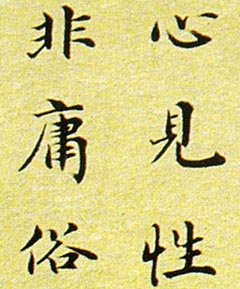 心見性
非庸俗